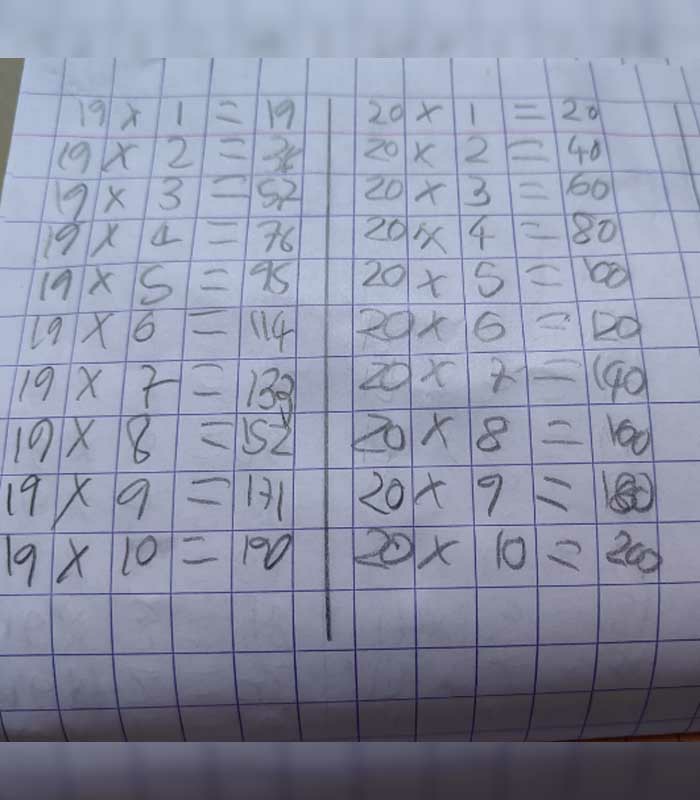 19 × 1 = 19
19 × 2 = 38
19 × 3 = 57
19 × 4 = 76
19 × 5 = 95
19 × 6 = 114
19 × 7 = 133
19 × 8 = 152
19 × 9 = 171
19 × 10 = 190
20 × 1 = 20
20 × 2 = 40
20 × 3 = 60
20 × 4 = 80
20 × 5 = 100
20 × 6 = 120
20 × 7 = 140
20 × 8 = 160
20 × 9 = 180
20 × 10 = 200